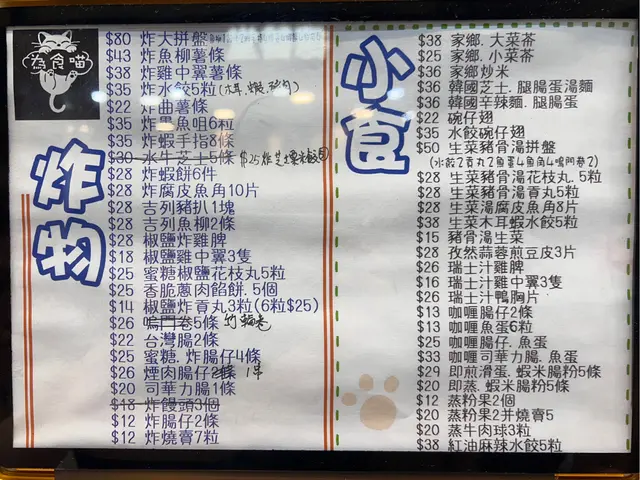 為食喵
炸物
$80 炸大拼盤
$43 炸魚柳薯條
$38 炸雞中翼薯條
$35 炸水餃5粒
$22 炸曲薯條
$35 炸墨魚咀6粒
$35 炸蝦手指8條
$30 水牛芝士5條
$28 炸蝦餅6件
$28 炸腐皮魚角10片
$28 吉列豬扒1塊
$28 吉列魚柳2條
$28 椒鹽炸雞脾
$18 椒鹽雞中翼3隻
$25 蜜糖椒鹽花枝丸5粒
$25 香脆蔥肉餡餅. 5個
$14 椒鹽炸貢丸3粒(6粒$25)
$26 鳴門卷5條
$22 台灣腸2條
$25 蜜糖. 炸腸仔4條
$26 煙肉腸仔2條 1串
$20 司華力腸1條
$18 炸饅頭3個
$12 炸腸仔2條
$12 炸燒賣7粒
小食
$38 家鄉. 大菜茶
$25 家鄉. 小菜茶
$36 家鄉炒米
$36 韓國芝士. 腿腸蛋湯麵
$36 韓國辛辣麵. 腿腸蛋
$22 碗仔翅
$35 水餃碗仔翅
$50 生菜豬骨湯拼盤
(水餃2貢丸2魚蛋4魚角4鳴門卷2)
$28 生菜豬骨湯花枝丸. 5粒
$28 生菜豬骨湯貢丸5粒
$28 生菜湯腐皮魚角8片
$38 生菜木耳蝦水餃5粒
$15 豬骨湯生菜
$28 孜然蒜蓉煎豆皮3片
$26 瑞士汁雞脾
$16 瑞士汁雞中翼3隻
$26 瑞士汁鴨胸片
$13 咖喱腸仔2條
$13 咖喱魚蛋6粒
$25 咖喱腸仔. 魚蛋
$33 咖喱司華力腸. 魚蛋
$29 即煎滑蛋. 蝦米腸粉5條
$20 即蒸. 蝦米腸粉5條
$12 蒸粉果2個
$20 蒸粉果2并燒賣5
$20 蒸牛肉球3粒
$38 紅油麻辣水餃5粒